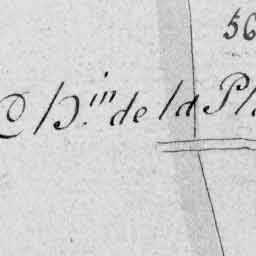 56
Ch.in de la Pl